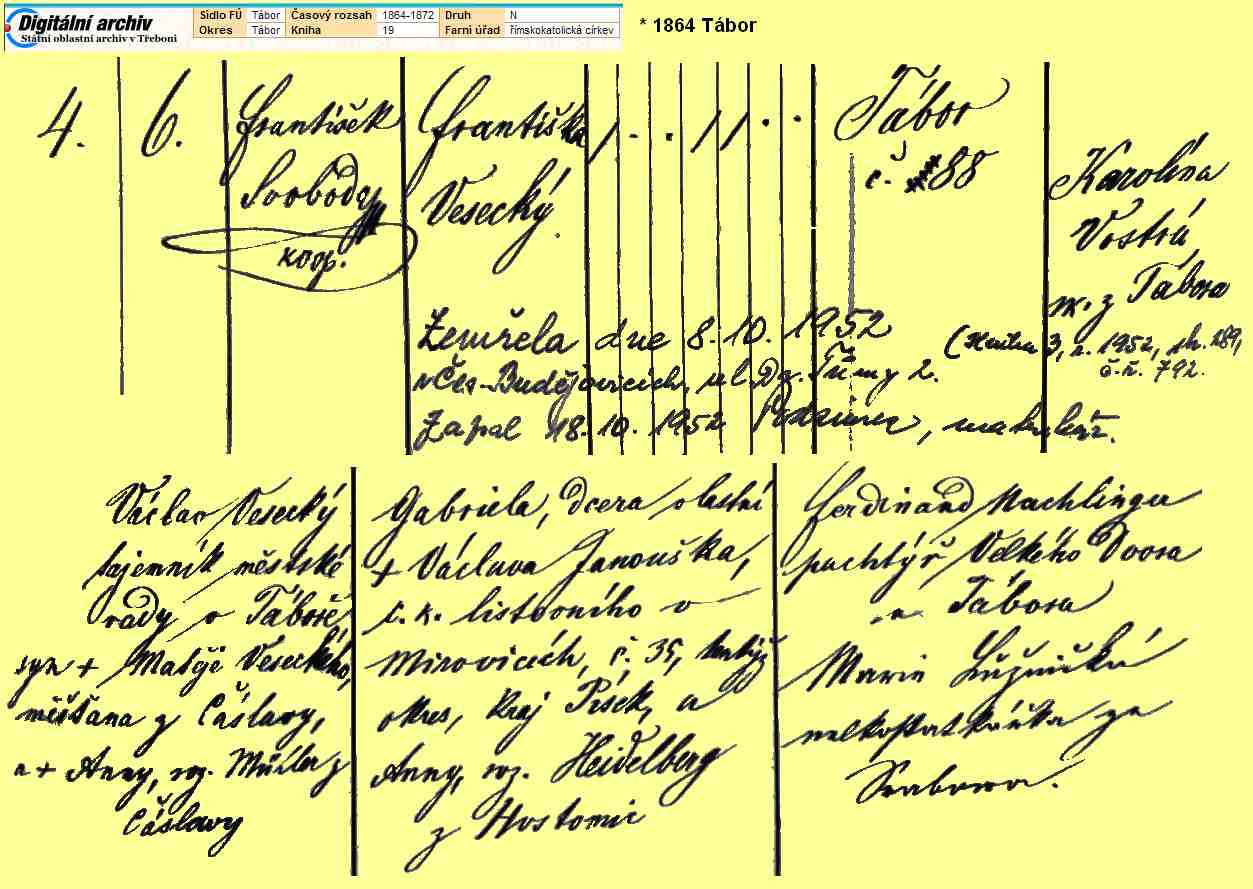 Digitální archiv
Státní oblastní archiv v Třeboni
Sídlo FÚ Tábor Časový rozsah 1864-1872 Druh N
Okres Tábor Kniha 19 Farní úřad římskokatolická církev
* 1864 Tábor
4. 6. František Františka / - · / / · · Tábor
Svobody č. 88
koop. Vesecký. Karolína
Vostrá
m. z Tábora
Zemřela dne 8. 10. 1952
v Čes. Budějovicích, ul. Dr. Tůmy 2.
(3, r. 1952, str. 289,
č. ř. 792.
Zapsal 18. 10. 1952 matrikář.
Václav Vesecký
tajemník městské
rady v Táboře
syn + Matěje Veseckého,
měšťana z Čáslavy,
a + Anny, roz. z
Čáslavy
Gabriela, dcera vlastní
+ Václava Janouška,
c. k. listovního v
Mirovicích, č. 35, tentýž
okres, kraj Písek, a
Anny, roz. Heidelberg
z Hostomic
Ferdinand Nachlinger
pachtýř Velkého Dvora
u Tábora
Marie Lužnická
velkostatkářka ze